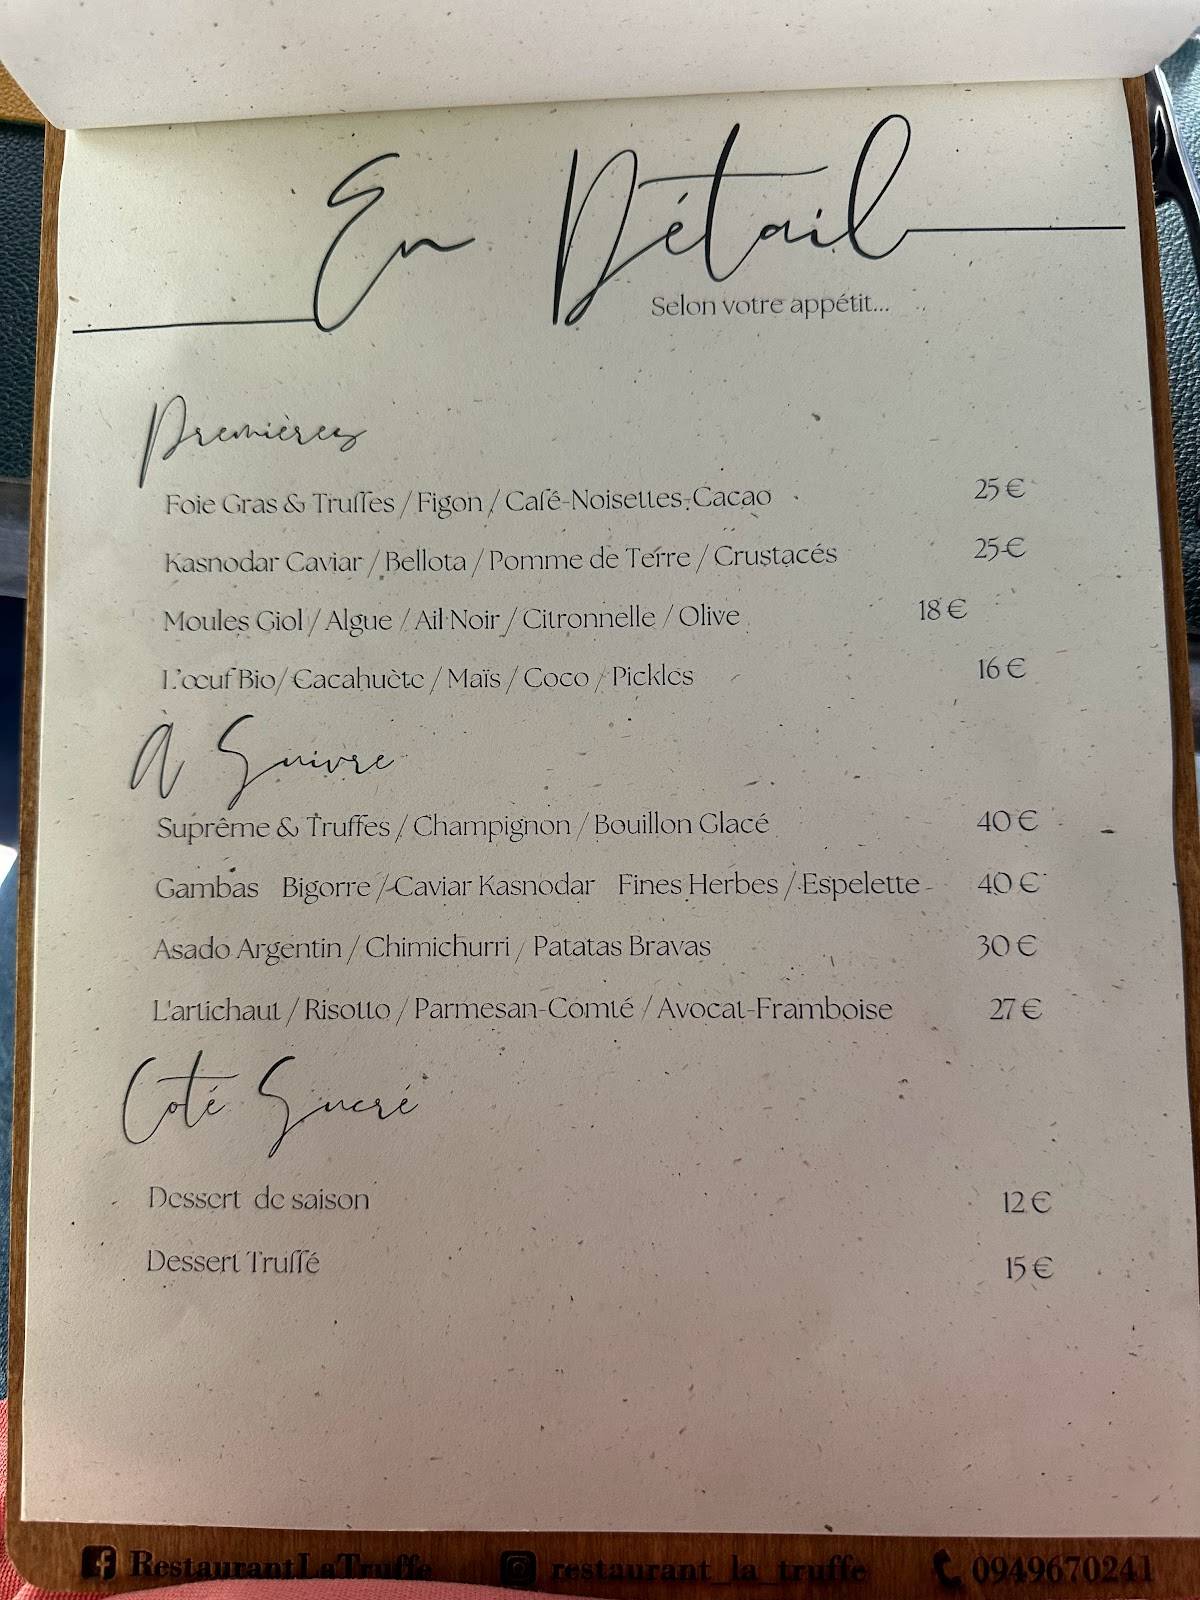 En Détail
Selon votre appétit...
Premières
Foie Gras & Truffes / Figon / Café-Noisettes-Cacao 25 €
Kasnodar Caviar / Bellota / Pomme de Terre / Crustacés 25 €
Moules Giol / Algue / Ail Noir / Citronnelle / Olive 18 €
L'œuf Bio / Cacahuète / Maïs / Coco / Pickles 16 €
À Suivre
Suprême & Truffes / Champignon / Bouillon Glacé 40 €
Gambas Bigorre / Caviar Kasnodar Fines Herbes / Espelette 40 €
Asado Argentin / Chimichurri / Patatas Bravas 30 €
L'artichaut / Risotto / Parmesan-Comté / Avocat-Framboise 27 €
Coté Sucré
Dessert de saison 12 €
Dessert Truffé 15 €
RestaurantLaTruffe restaurant_la_truffe 0949670241